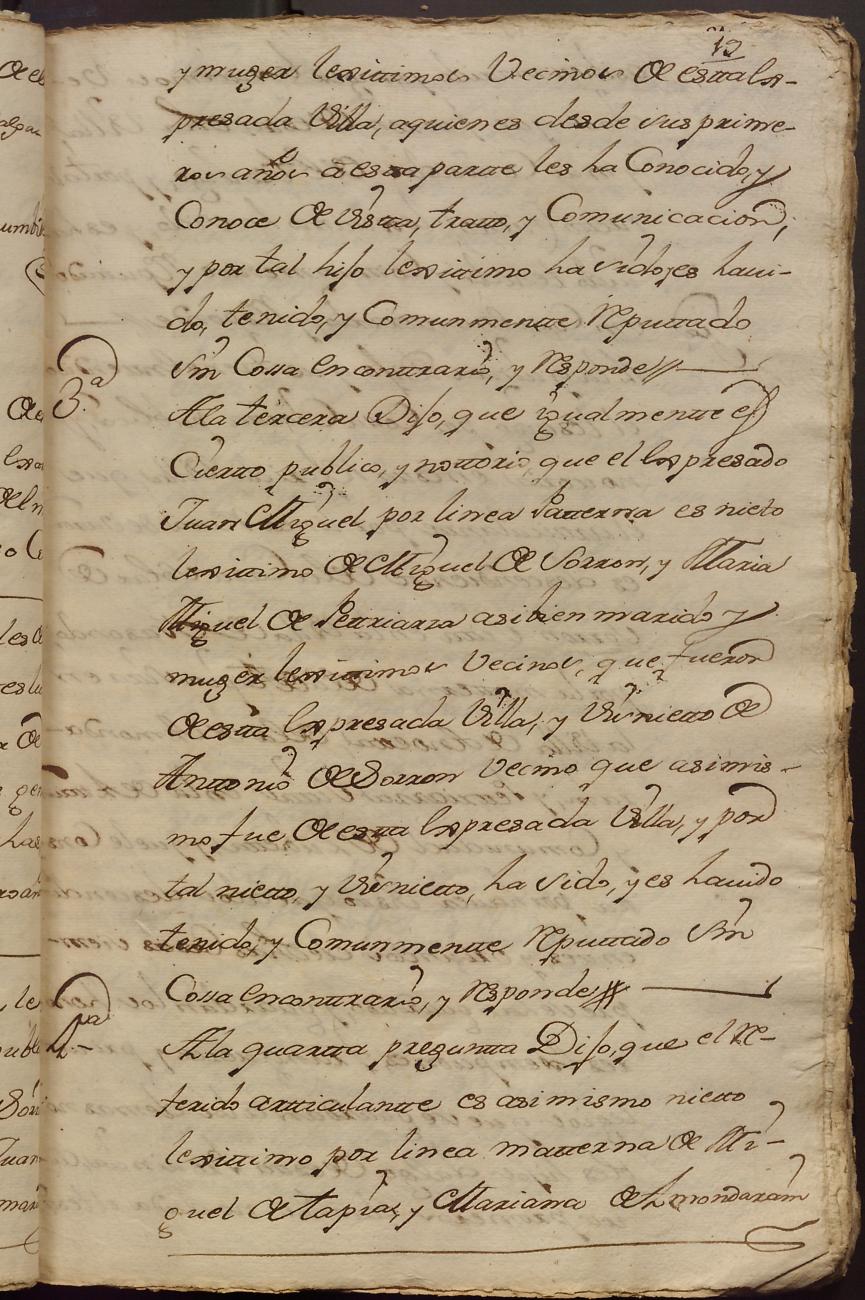 19
y muger lexittimos Vecinos de esta Ex-
presada Villa, a quienes desde sus prime-
ros años a esta parte les ha Conocido, y
Conoce de Vista, tratto, y Comunicacion,
y por tal hijo lexittimo ha sido, y es havi-
do, tenido, y Comunmente Reputtado
sin Cossa en conttrario, y Responde
3.ª
A la tercera Dijo, que igualmentte es
Ciertto publico, y nottorio, que el Expresado
Juan Miguel por linea Patterna es nieto
lexittimo de Miguel de Sorron, y Maria
Miguel de asi bien marido y
muger lexittimos Vecinos, que fueron
de esta Expresada Villa, y Visnietto de
Anttonio de Sorron Vecino que asimis-
mo fue de esta Expresada Villa, y por
tal nietto, y Visnietto, ha sido, y es havido
tenido, y Comunmentte Reputtado sin
Cossa en conttrario, y Responde
4.ª
A la quartta preguntta Dijo, que el Re-
ferido artticulantte es asimismo nietto
lexittimo por linea matterna de Mi-
guel de Tapia, y Mariana de Almondarain